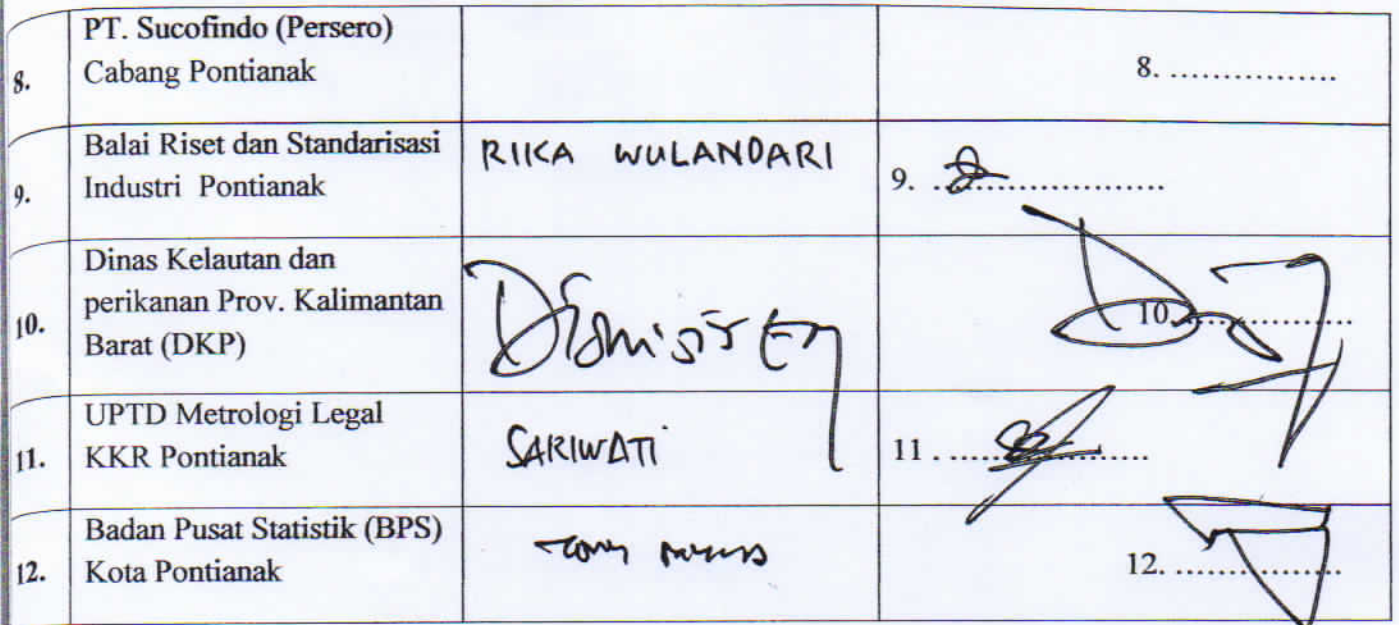 8. PT. Sucofindo (Persero)
Cabang Pontianak
8. ...............
9. Balai Riset dan Standarisasi
Industri Pontianak
RIKA WULANDARI
9. ...............
10. Dinas Kelautan dan
perikanan Prov. Kalimantan
Barat (DKP)
10. ...............
11. UPTD Metrologi Legal
KKR Pontianak
SARIWATI
11 . ...............
12. Badan Pusat Statistik (BPS)
Kota Pontianak
12. ...............